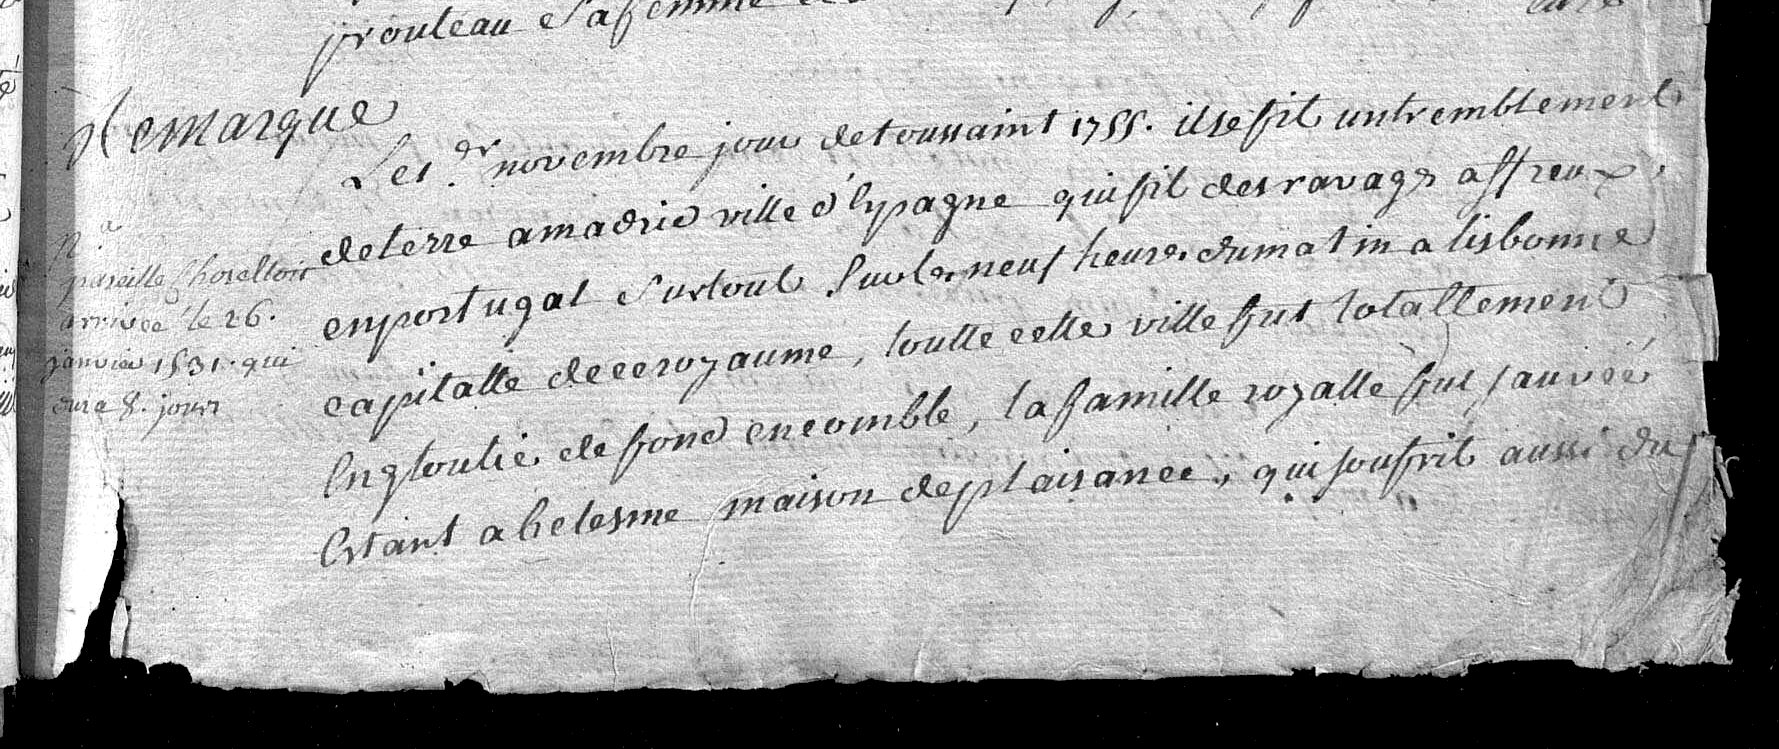 prouteau Sa femme
Remarque
Le 1.er novembre jour de toussaint 1755. il se fit un tremblement
de terre a madrid ville d'Espagne qui fit des ravages affreux,
en portugal Surtout Sur les neuf heures du matin a lisbonne
capitalle de ce royaume, toutte cette ville fut totallement
Engloutie de fond en comble, la famille royalle fut sauvée
Estant a belesme maison de plaisance, qui soufrit aussi du
N.a
pareille chose estoit
arrivée le 26.
janvier 1531. qui
dura 8. jours